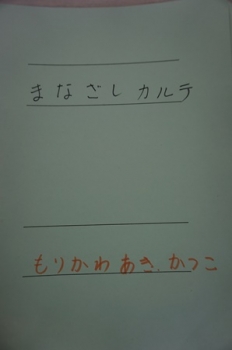 まなざしカルテ
もりかわあき.かつこ